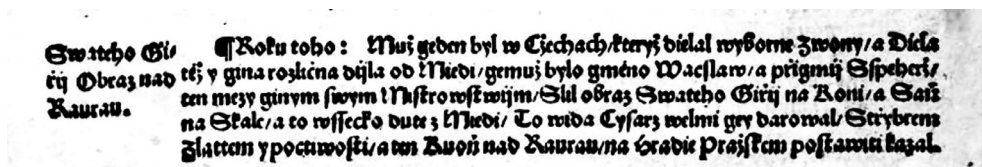 Swatého Gi⸗
řij Obraz nad
Raurau.
¶ Roku toho: Muž geden byl w Cžechach/kteryž dielal wyborne Zwony/a Diela
též y gina rozličná dijla od Miedi/gemuž bylo gméno Wacslaw/a přigmij Sspeherž/
ten mezy ginym swym Mistrowstwijm/Slil obraz Swateho Giřij na Koni/a Saň
na Skale/a to wssecko dute z Miedi/ To wida Cysarz welmi gey darowal/Strybrem
Zlattem y poctiwosti/a ten Kuoň nad Raurau/na Hradie Pražskem postawiti kazal.